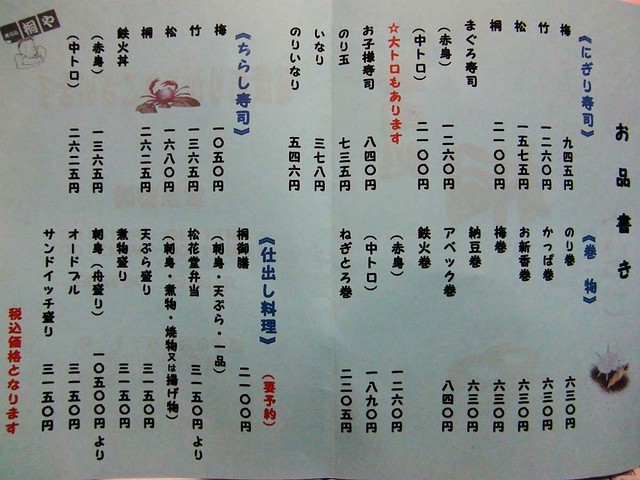 お品書き
《にぎり寿司》
梅 九四五円
竹 一二六〇円
松 一五七五円
桐 二一〇〇円
まぐろ寿司
(赤身) 一二六〇円
(中トロ) 二一〇〇円
☆大トロもあります
お子様寿司 八四〇円
のり玉 七三五円
いなり 三七八円
のりいなり 五四六円
《ちらし寿司》
梅 一〇五〇円
竹 一三六五円
松 一六八〇円
桐 二六二五円
鉄火丼
(赤身) 一三六五円
(中トロ) 二六二五円
《巻物》
のり巻 六三〇円
かっぱ巻 六三〇円
お新香巻 六三〇円
梅巻 六三〇円
納豆巻 六三〇円
アベック巻 八四〇円
鉄火巻
(赤身) 一二六〇円
(中トロ) 一八九〇円
ねぎとろ巻 二二〇五円
《仕出し料理》 (要予約)
桐御膳 二一〇〇円
(刺身・天ぷら・一品)
松花堂弁当 三一五〇円より
(刺身・煮物・焼物又は揚げ物)
天ぷら盛り 三一五〇円
煮物盛り 三一五〇円
刺身(舟盛り) 一〇五〇〇円より
オードブル 三一五〇円
サンドイッチ盛り 三一五〇円
税込価格となります
桐や